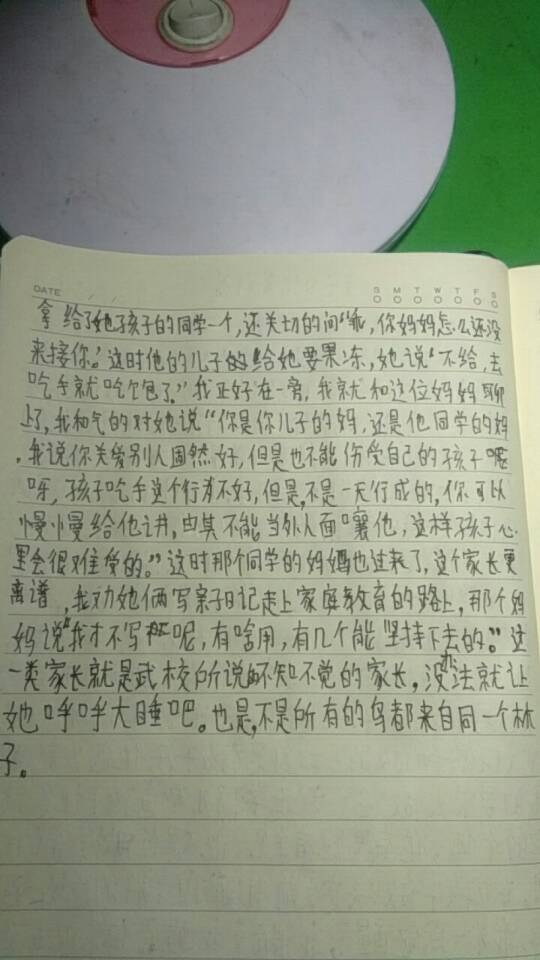 DATE / /
S M T W T F S
拿给了她孩子的同学一个,还关切的问"乖,你妈妈怎么还没
来接你。"这时他的儿子的给她要果冻,她说"不给,去
吃手就吃饱了。"我正好在一旁,我就和这位妈妈聊
上了,我和气的对她说"你是你儿子的妈,还是他同学的妈
。我说你关爱别人固然好,但是也不能伤受自己的孩子呢
呀,孩子吃手这个行为不好,但是,不是一天行成的,你可以
慢慢给他讲,由其不能当外人面嚷他,这样孩子心
里会很难受的。"这时那个同学的妈妈也过来了,这个家长更
离谱,我劝她俩写亲子日记走上家庭教育的路上,那个妈
妈说"我才不写呢,有啥用,有几个能坚持下去的。"这
一类家长就是武校所说的不知不觉的家长,没办法就让
她呼呼大睡吧。也是,不是所有的鸟都来自同一个林
子。